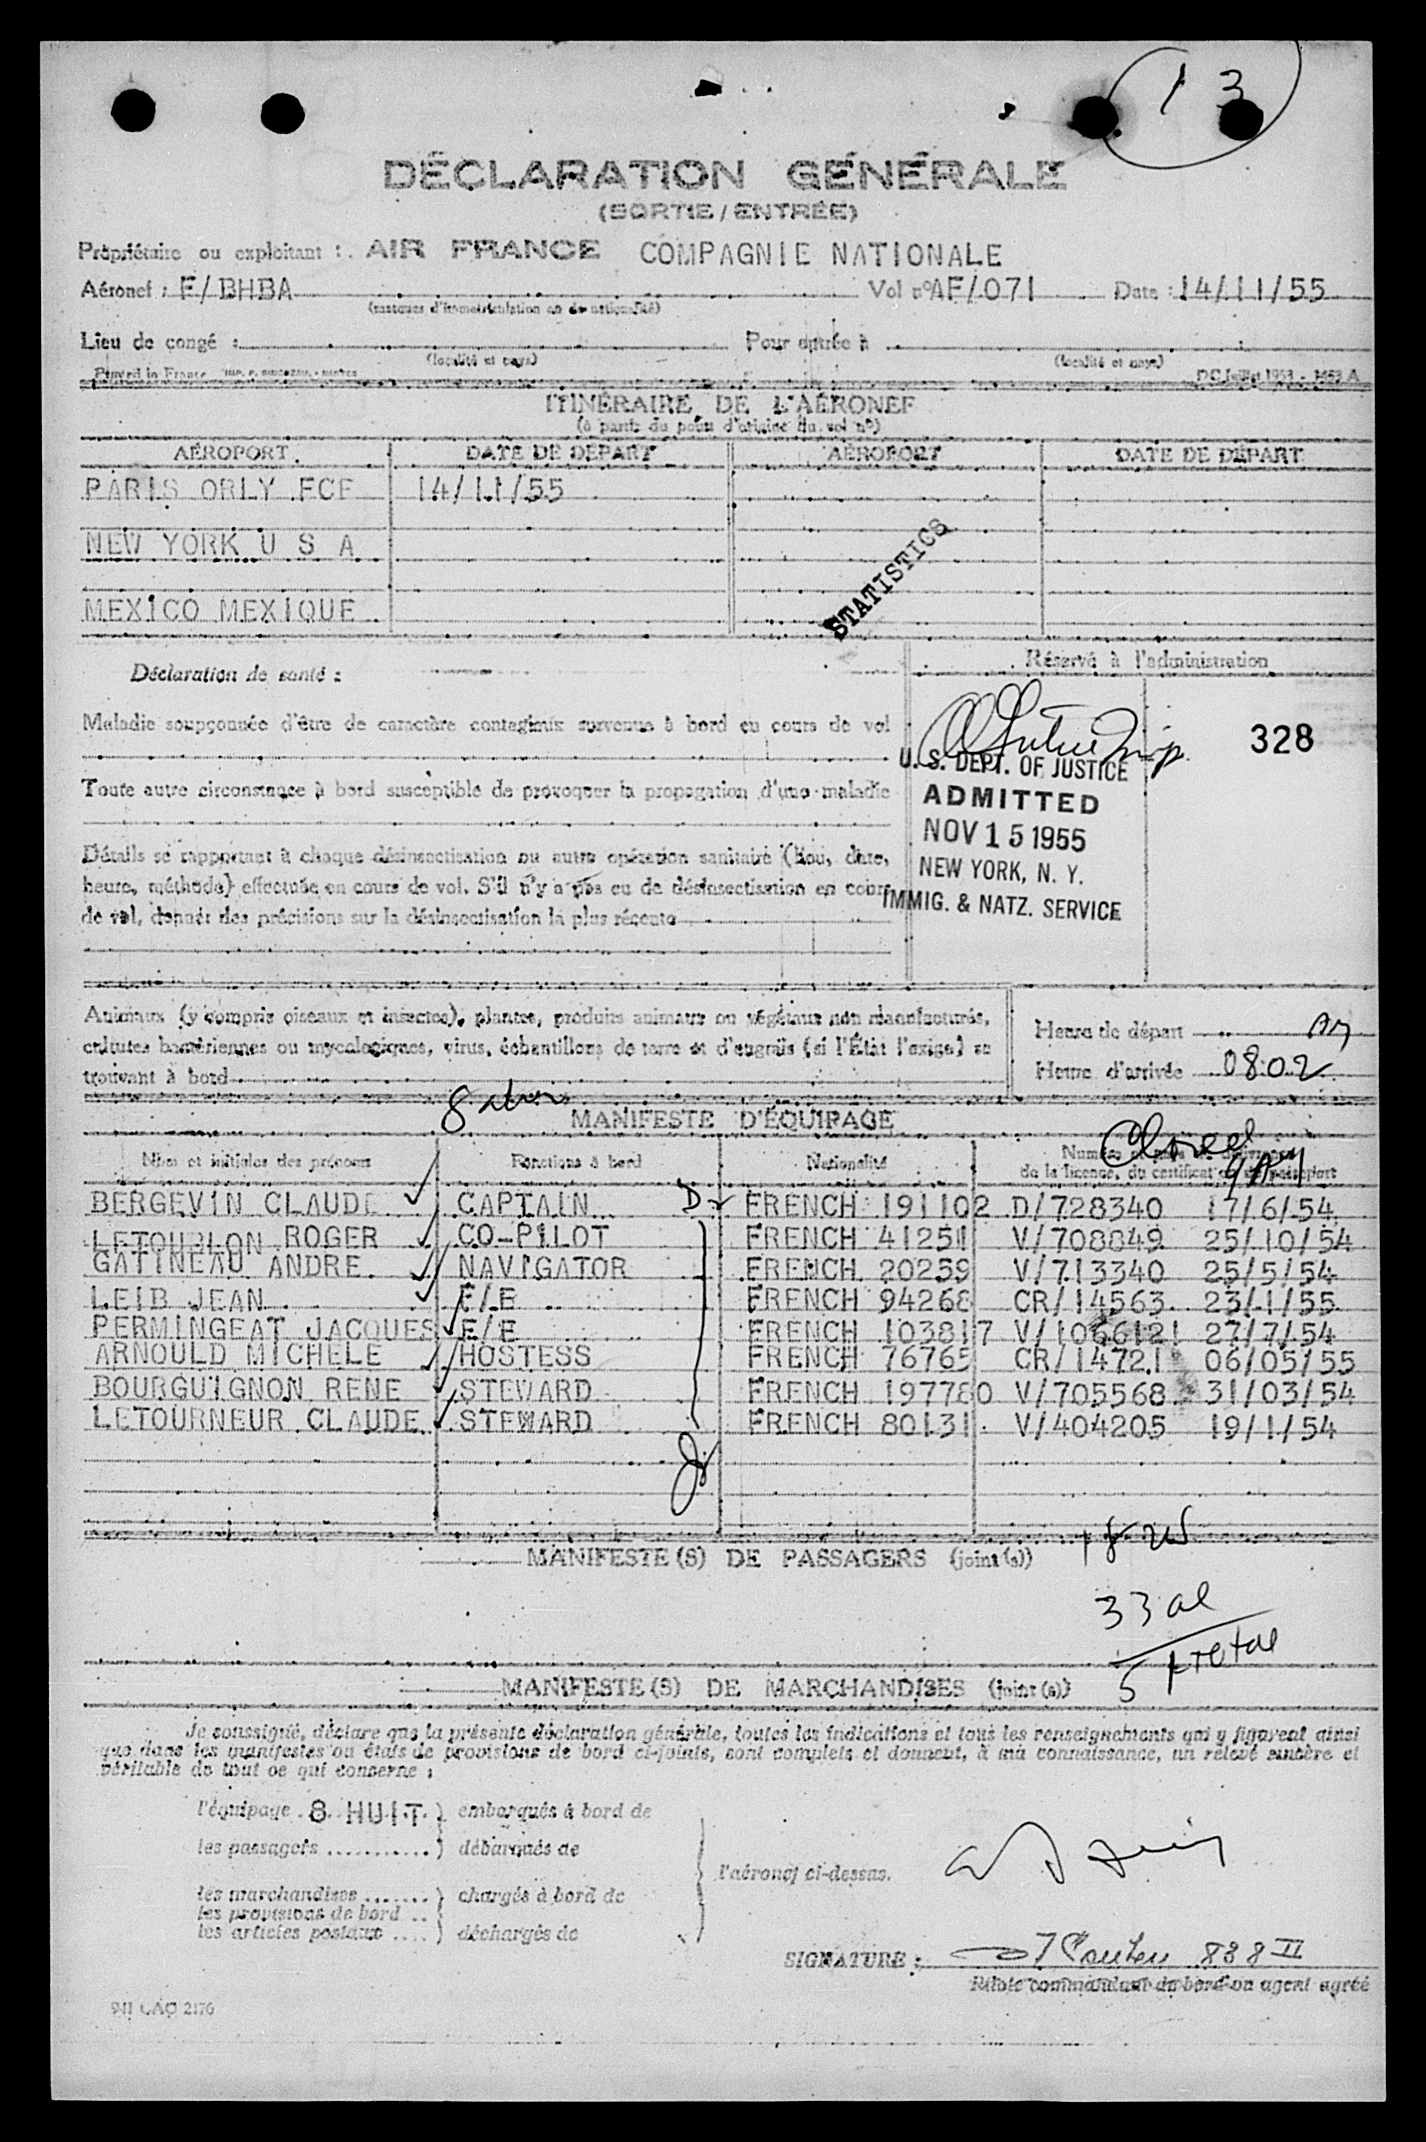 13
DÉCLARATION GÉNÉRALE
(SORTIE / ENTRÉE)
Propriétaire ou exploitant : AIR FRANCE COMPAGNIE NATIONALE
Aéronef : F/BHBA Vol n° AF/071 Date : 14/11/55
(marques d'immatriculation et de nationalité)
Lieu de congé : Pour entrée à
(localité et pays) (localité et pays)
Printed in France
ITINÉRAIRE DE L'AÉRONEF
(à partir du point d'origine du vol n°)
AÉROPORT DATE DE DÉPART AÉROPORT DATE DE DÉPART
PARIS ORLY FCE 14/11/55
NEW YORK U S A
MEXICO MEXIQUE
STATISTICS
Déclaration de santé :
Réservé à l'administration
Maladie soupçonnée d'être de caractère contagieux survenue à bord en cours de vol
328
U. S. DEPT. OF JUSTICE
ADMITTED
NOV 15 1955
NEW YORK, N. Y.
IMMIG. & NATZ. SERVICE
Toute autre circonstance à bord susceptible de provoquer la propagation d'une maladie
Détails se rapportant à chaque désinsectisation ou autre opération sanitaire (lieu, date,
heure, méthode) effectuée en cours de vol. S'il n'y a pas eu de désinsectisation en cours
de vol, donner des précisions sur la désinsectisation la plus récente
Animaux (y compris oiseaux et insectes), plantes, produits animaux ou végétaux non manufacturés,
cultures bactériennes ou mycologiques, virus, échantillons de terre et d'engrais (si l'État l'exige) se
trouvant à bord
Heure de départ AM
Heure d'arrivée 0802
MANIFESTE D'ÉQUIPAGE
Nom et initiales des prénoms Fonctions à bord Nationalité
de la licence, du certificat
BERGEVIN CLAUDE CAPTAIN FRENCH 191102 D/728340 17/6/54
LETOUBLON ROGER CO-PILOT FRENCH 41251 V/708849 25/10/54
GATINEAU ANDRE NAVIGATOR FRENCH 20259 V/713340 25/5/54
LEIB JEAN F/E FRENCH 94268 CR/14563 23/1/55
PERMINGEAT JACQUES F/E FRENCH 103817 V/1066121 27/7/54
ARNOULD MICHELE HOSTESS FRENCH 76765 CR/14721 06/05/55
BOURGUIGNON RENE STEWARD FRENCH 197780 V/705568 31/03/54
LETOURNEUR CLAUDE STEWARD FRENCH 80131 V/404205 19/1/54
MANIFESTE (S) DE PASSAGERS (joint (s))
33 al
total
MANIFESTE (S) DE MARCHANDISES (joint (s))
Je soussigné, déclare que la présente déclaration générale, toutes les indications et tous les renseignements qui y figurent ainsi
que dans les manifestes ou états de provisions de bord ci-joints, sont complets et donnent, à ma connaissance, un relevé sincère et
véritable de tout ce qui concerne :
l'équipage 8 HUIT ) embarqués à bord de
les passagers ........... ) débarqués de
l'aéronef ci-dessus.
les marchandises ....... ) chargés à bord de
les provisions de bord ..
les articles postaux .... ) déchargés de
SIGNATURE : 838 II
Pilote commandant de bord ou agent agréé
941 CAO 2176